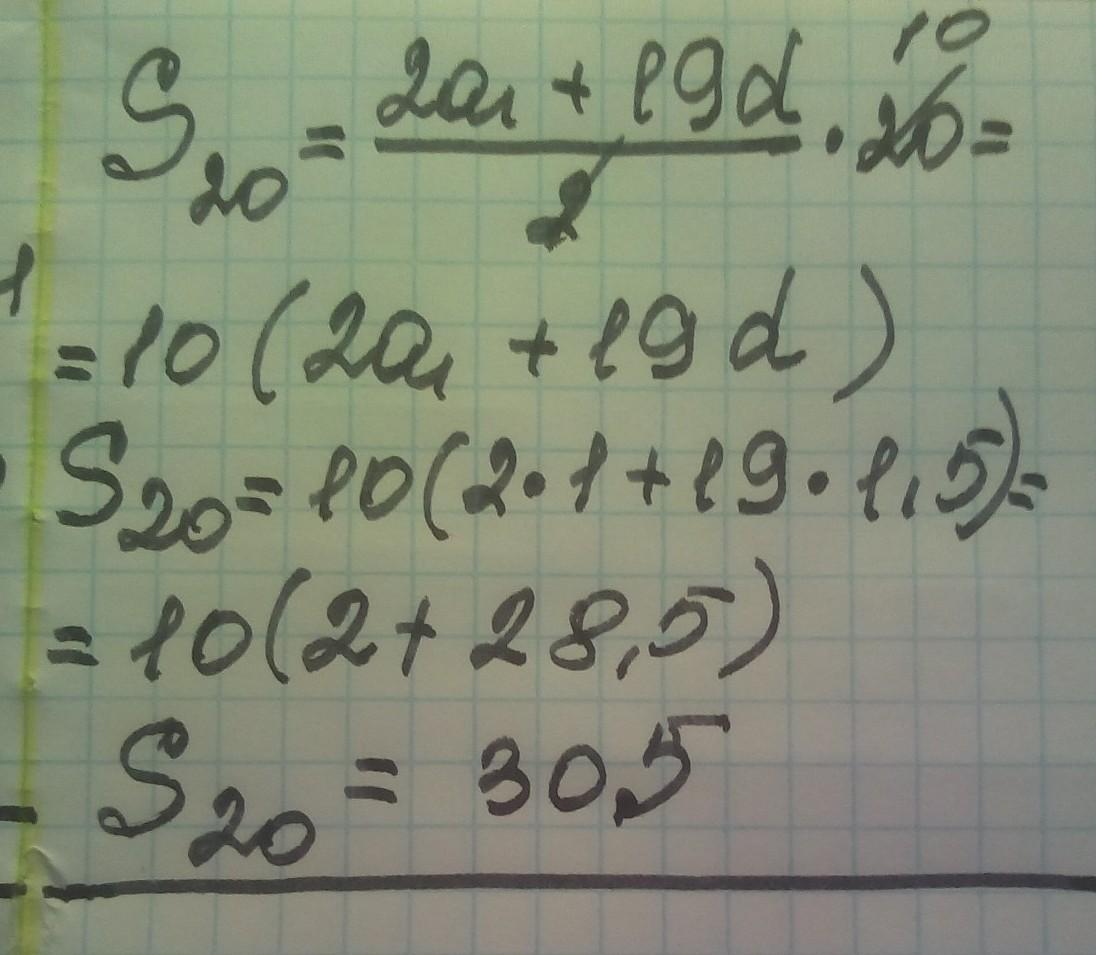 S₂₀ = (2a₁ + 19d)/2 · 20 = 10
1
= 10 (2a₁ + 19 d)
S₂₀ = 10 (2 · 1 + 19 · 1,5) =
= 10 (2 + 28,5)
S₂₀ = 30,5